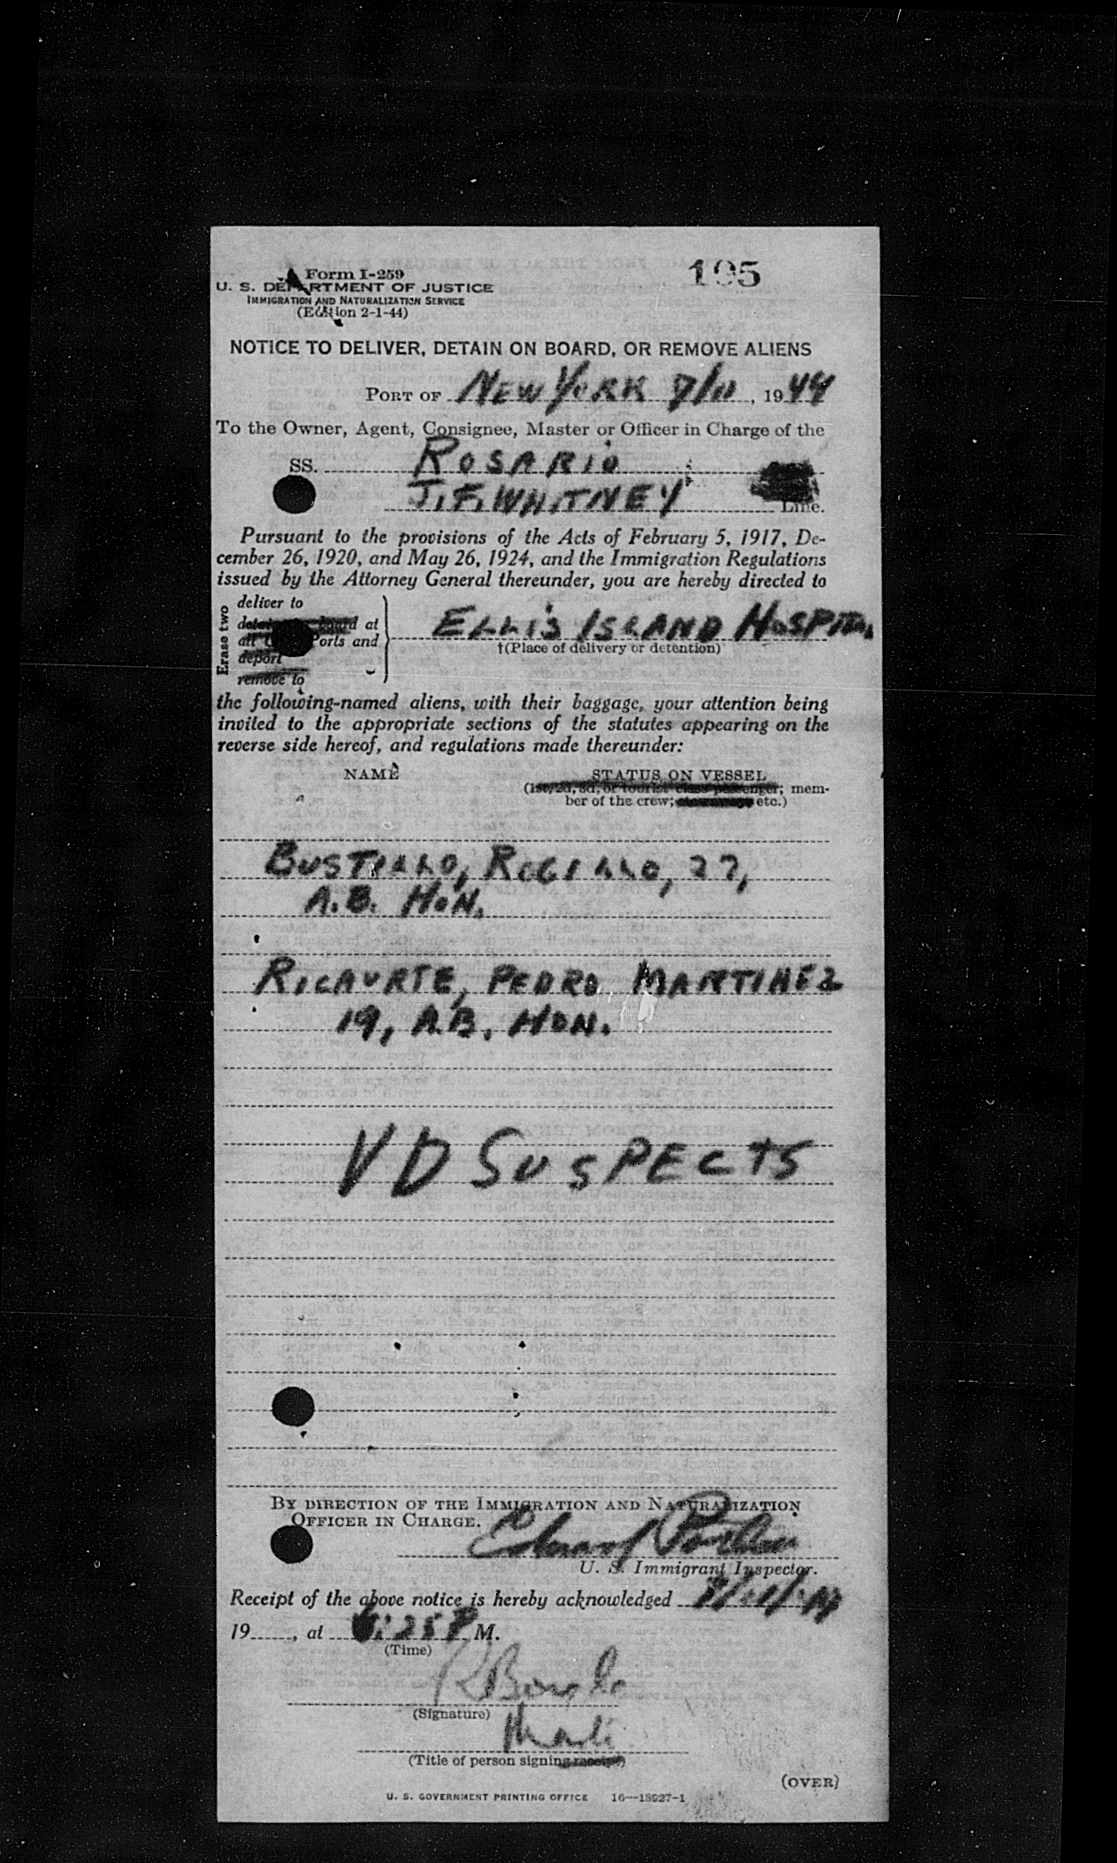 Form I-259
195
U. S. DEPARTMENT OF JUSTICE
IMMIGRATION AND NATURALIZATION SERVICE
(Edition 2-1-44)
NOTICE TO DELIVER, DETAIN ON BOARD, OR REMOVE ALIENS
PORT OF NEW YORK 7/11, 1944
To the Owner, Agent, Consignee, Master or Officer in Charge of the
SS. ROSARIO
J. F. WHITNEY Line.
Pursuant to the provisions of the Acts of February 5, 1917, De-
cember 26, 1920, and May 26, 1924, and the Immigration Regulations
issued by the Attorney General thereunder, you are hereby directed to
Erase two
deliver to
detain on board at
all U. S. Ports and
deport
remove to
ELLIS ISLAND HOSPITAL
†(Place of delivery or detention)
the following-named aliens, with their baggage, your attention being
invited to the appropriate sections of the statutes appearing on the
reverse side hereof, and regulations made thereunder:
NAME STATUS ON VESSEL
(1st, 2d, 3d, or tourist class passenger; mem-
ber of the crew; stowaways etc.)
BUSTILLO, 27,
A.B. HON.
RICAURTE, PEDRO MARTINEZ
19, A.B. HON.
VD SUSPECTS
BY DIRECTION OF THE IMMIGRATION AND NATURALIZATION
OFFICER IN CHARGE.
U. S. Immigrant Inspector.
Receipt of the above notice is hereby acknowledged
19____, at 6:25 P M.
(Time)
(Signature)
(Title of person signing receipt)
(OVER)
U. S. GOVERNMENT PRINTING OFFICE 16—18927-1